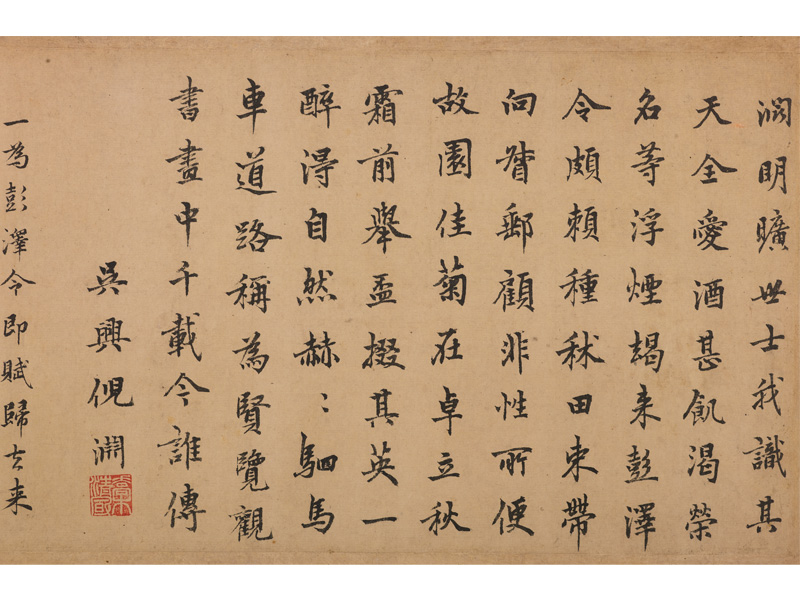 淵明曠世士我識其
天全愛酒甚飢渴榮
名等浮煙朅来彭澤
令頗頼種秫田束帶
向督郵顧非性所便
故園佳菊在卓立秋
霜前舉盃掇其英一
醉得自然赫〻駟馬
車道路稱為賢覽觀
書畫中千載今誰傳
吳興倪淵
一為彭澤令即賦歸去来